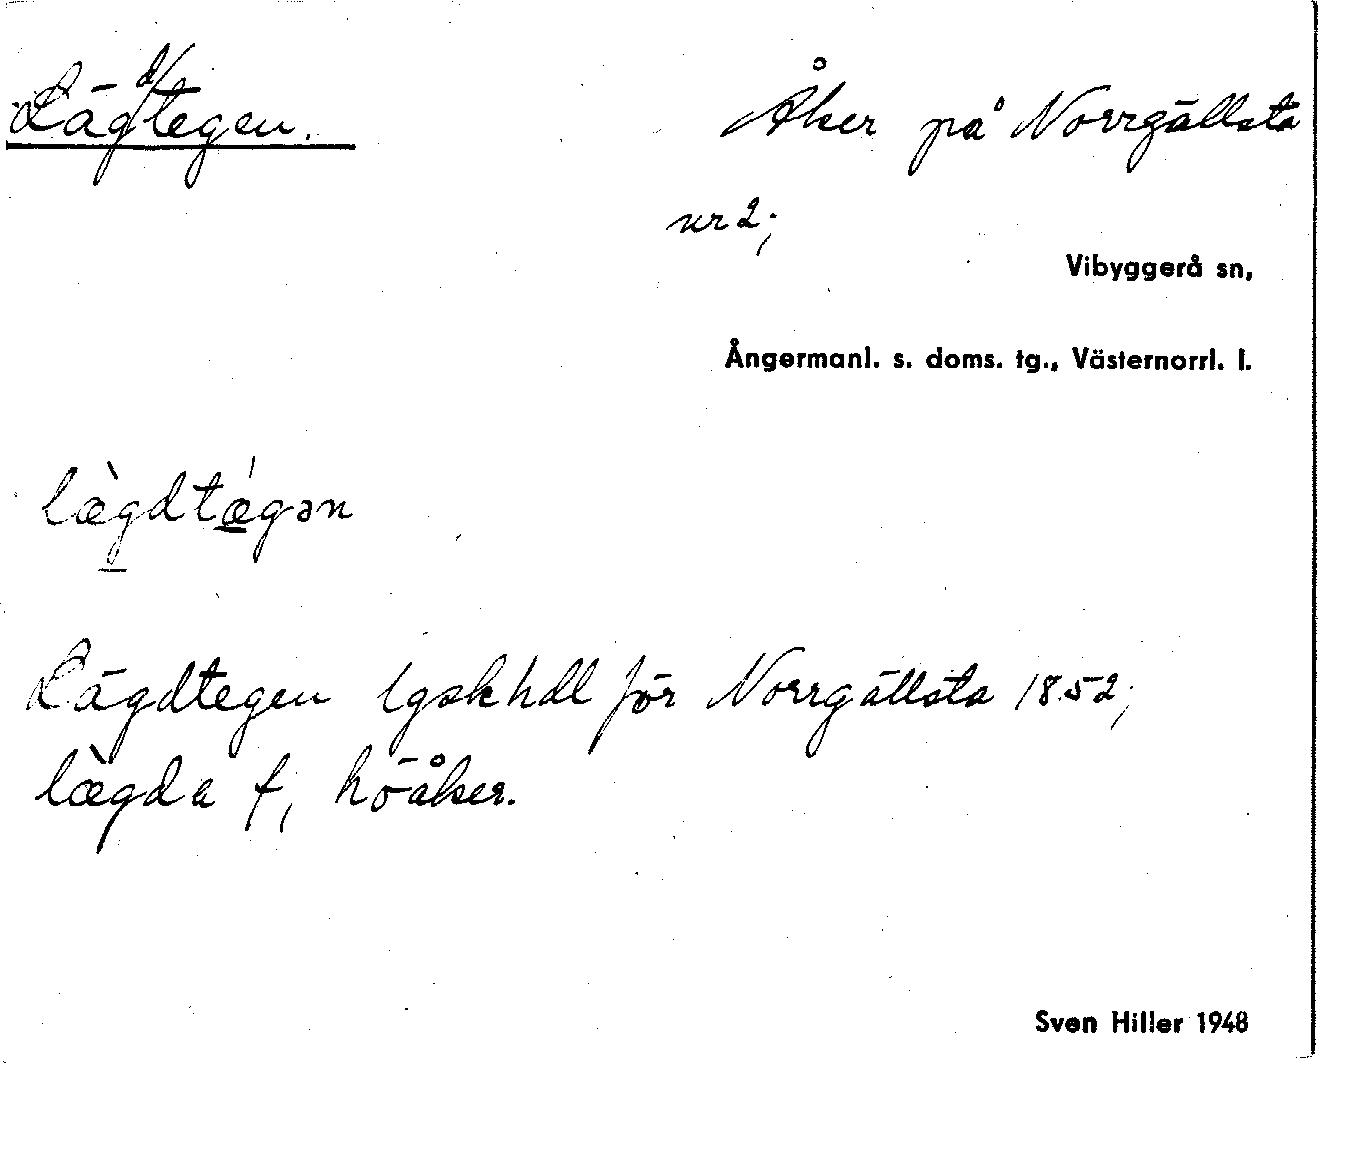 Lägdtegen.
Åker på Norrgällsta
nr 2;
Vibyggerå sn,
Ångermanl. s. doms. tg., Västernorrl. l.
læ̀gdtǽgən
Lägdtegen lgskhdl för Norrgällsta 1852;
læ̀gda f, höåker.
Sven Hiller 1948